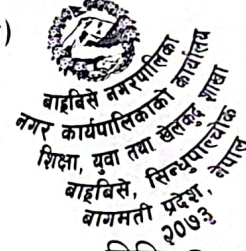 )
बाह्रबिसे नगरपालिका
नगर कार्यपालिकाको कार्यालय
शिक्षा, युवा तथा खेलकुद शाखा
बाह्रबिसे, सिन्धुपाल्चोक
बागमती प्रदेश, नेपाल
२०७३